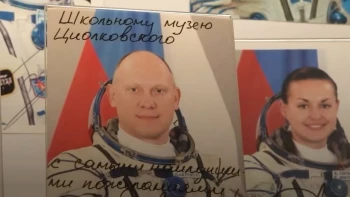 Школьному музею
Циолковского
с самыми наилучши
ми пожеланиями